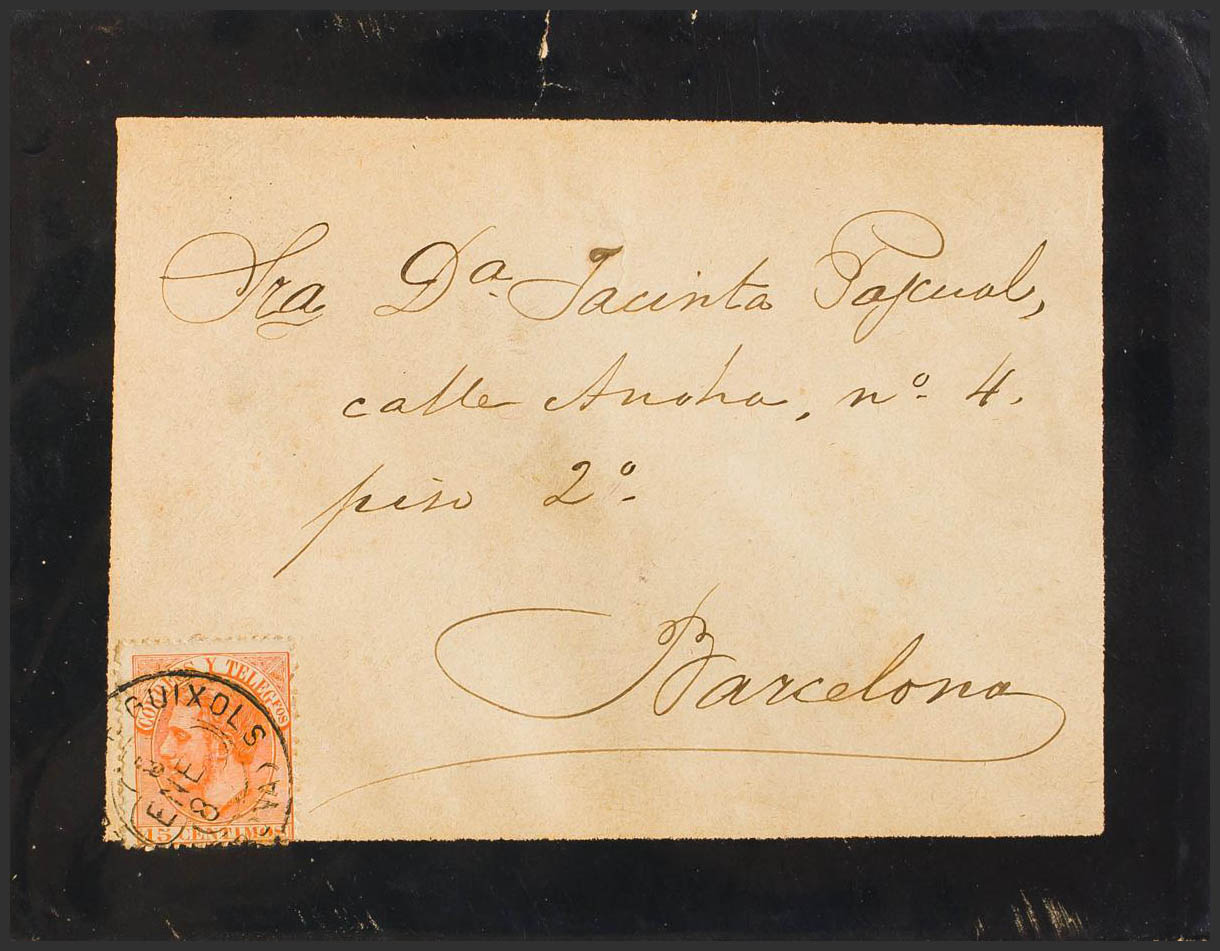 Sra Dª Jacinta Pascual,
calle Ancha, nº 4.
piso 2º
Barcelona
CORREOS Y TELEGFOS
GUIXOLS
ENE
15 CENTIMOS